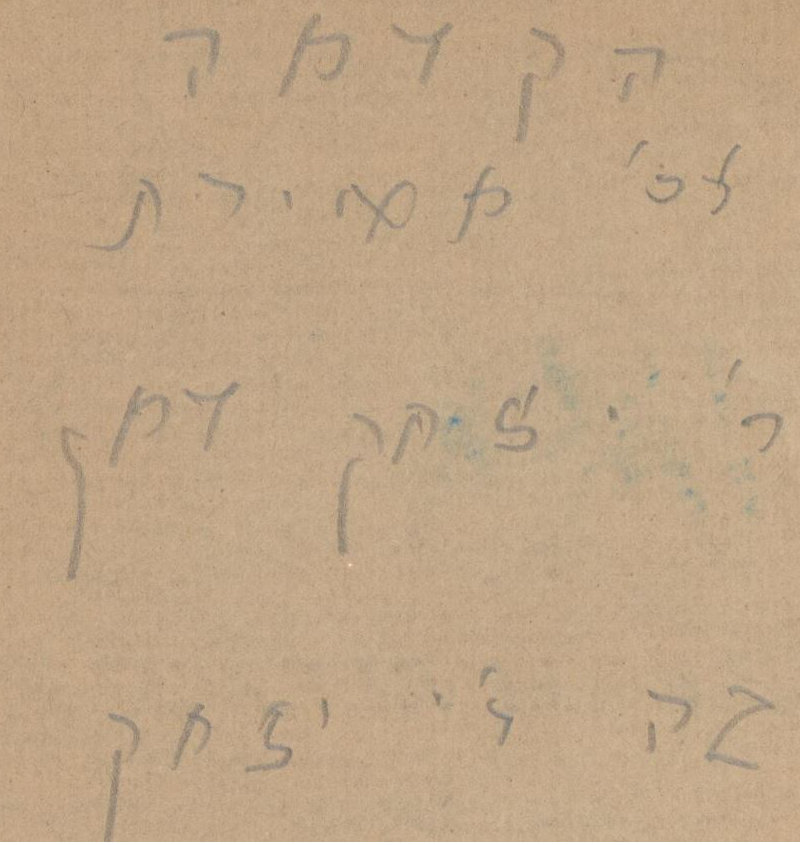 הקדמה
לס' מאירת
ר' יצחק דמן
בה ר' יצחק